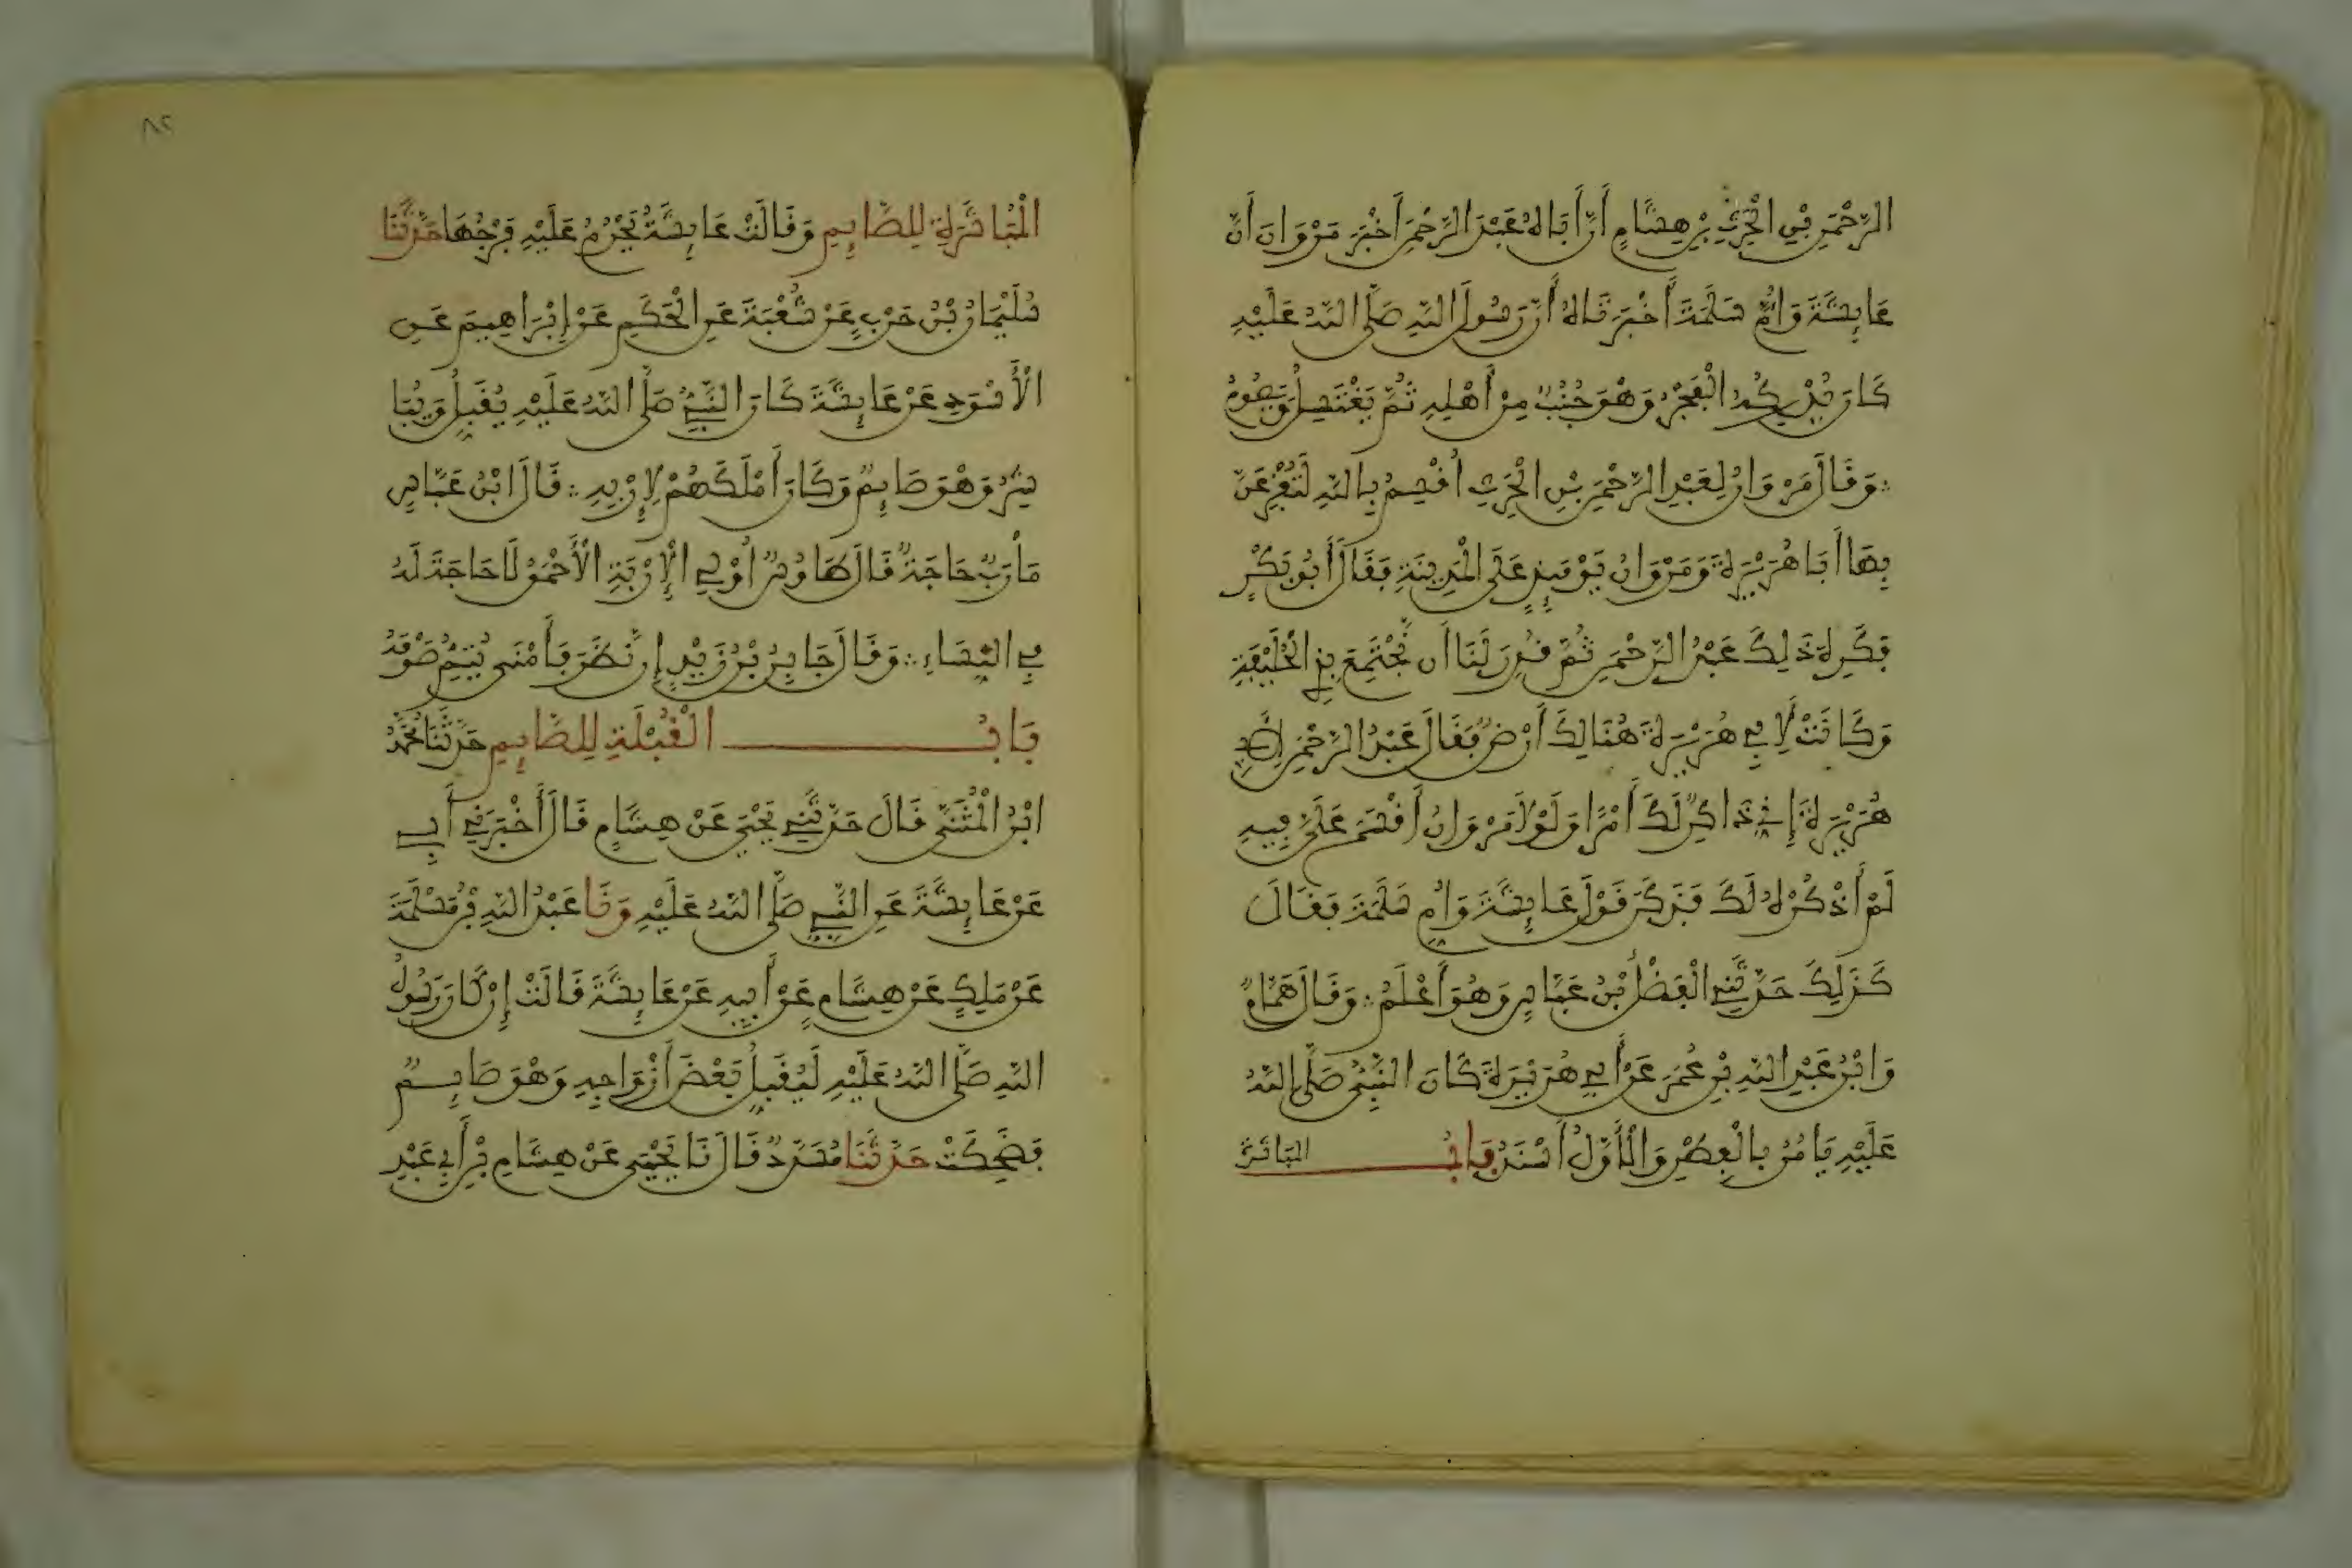 الرَّحْمَنِ بْنِ الْحَرِثِ بْنِ هِشَامٍ أَنَّ أَبَاهُ عَبْدَ الرَّحْمَنِ أَخْبَرَ مَرْوَانَ أَنَّ
عَائِشَةَ وَأُمَّ سَلَمَةَ أَخْبَرَتَاهُ أَنَّ رَسُولَ اللَّهِ صَلَّى اللَّهُ عَلَيْهِ
كَانَ يُدْرِكُهُ الْفَجْرُ وَهْوَ جُنُبٌ مِنْ أَهْلِهِ ثُمَّ يَغْتَسِلُ وَيَصُومُ
وَقَالَ مَرْوَانُ لِعَبْدِ الرَّحْمَنِ بْنِ الْحَرِثِ أُقْسِمُ بِاللَّهِ لَتُفْزِعَنَّ
بِهَا أَبَا هُرَيْرَةَ وَمَرْوَانُ يَوْمَئِذٍ عَلَى الْمَدِينَةِ فَقَالَ أَبُو بَكْرٍ
فَكَرِهَ ذَلِكَ عَبْدُ الرَّحْمَنِ ثُمَّ قُدِّرَ لَنَا أَن نَّجْتَمِعَ بِذِي الْحُلَيْفَةِ
وَكَانَتْ لِأَبِي هُرَيْرَةَ هُنَالِكَ أَرْضٌ فَقَالَ عَبْدُ الرَّحْمَنِ لِأَبِي
هُرَيْرَةَ إِنِّي ذَاكِرٌ لَكَ أَمْرًا وَلَوْلَا مَرْوَانُ أَقْسَمَ عَلَيَّ فِيهِ
لَمْ أَذْكُرْهُ لَكَ فَذَكَرَ قَوْلَ عَائِشَةَ وَأُمِّ سَلَمَةَ فَقَالَ
كَذَلِكَ حَدَّثَنِي الْفَضْلُ بْنُ عَبَّاسٍ وَهُوَ أَعْلَمُ وَقَالَ هَمَّامٌ
وَابْنُ عَبْدِ اللَّهِ بْنِ عُمَرَ عَنْ أَبِي هُرَيْرَةَ كَانَ النَّبِيُّ صَلَّى اللَّهُ
عَلَيْهِ يَأْمُرُ بِالْفِطْرِ وَالْأَوَّلُ أَسْنَدُ بَابُ
الْمُبَاشَرَةِ لِلصَّائِمِ وَقَالَتْ عَائِشَةُ يَحْرُمُ عَلَيْهِ فَرْجُهَا حَدَّثَنَا
سُلَيْمَانُ بْنُ حَرْبٍ عَنْ شُعْبَةَ عَنِ الْحَكَمِ عَنْ إِبْرَاهِيمَ عَنِ
الْأَسْوَدِ عَنْ عَائِشَةَ كَانَ النَّبِيُّ صَلَّى اللَّهُ عَلَيْهِ يُقَبِّلُ وَيُبَا
شِرُ وَهْوَ صَائِمٌ وَكَانَ أَمْلَكَهُمْ لِإِرْبِهِ قَالَ ابْنُ عَبَّاسٍ
مَأْرَبٌ حَاجَةٌ قَالَ طَاوُسٌ أُوْلِي الْإِرْبَةِ الْأَحْمَقُ لَا حَاجَةَ لَهُ
فِي النِّسَاءِ وَقَالَ جَابِرُ بْنُ زَيْدٍ إِن نَّظَرَ فَأَمْنَى يُتِمُّ صَوْمَهُ
بَابُ الْقُبْلَةِ لِلصَّائِمِ حَدَّثَنَا مُحَمَّدُ
ابْنُ الْمُثَنَّى قَالَ حَدَّثَنِي يَحْيَى عَنْ هِشَامٍ قَالَ أَخْبَرَنِي أَبِي
عَنْ عَائِشَةَ عَنِ النَّبِيِّ صَلَّى اللَّهُ عَلَيْهِ وَنَا عَبْدُ اللَّهِ بْنُ مَسْلَمَةَ
عَنْ مَلِكٍ عَنْ هِشَامٍ عَنْ أَبِيهِ عَنْ عَائِشَةَ قَالَتْ إِنْ كَانَ رَسُولُ
اللَّهِ صَلَّى اللَّهُ عَلَيْهِ لَيُقَبِّلُ بَعْضَ أَزْوَاجِهِ وَهْوَ صَائِمٌ
فَضَحِكَتْ حَدَّثَنَا مُسَدَّدٌ قَالَ نَا يَحْيَى عَنْ هِشَامِ بْنِ أَبِي عَبْدِ